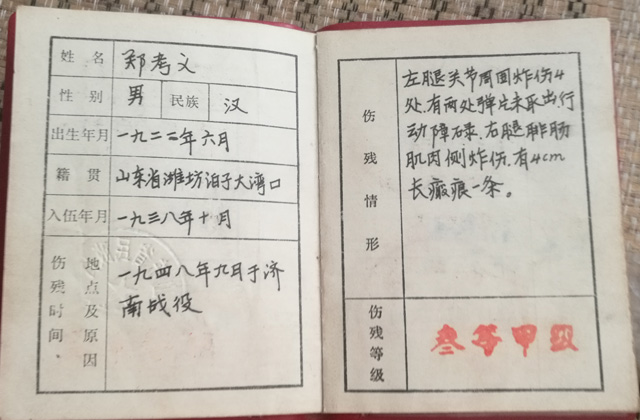 姓名 郑考文
性别 男 民族 汉
出生年月 一九二二年六月
籍贯 山东省潍坊泊子大湾口
入伍年月 一九三八年十月
伤残时间、地点及原因
一九四八年九月于济
南战役
伤残情形
左腿关节周围炸伤4
处.有两处弹片未取出行
动障碍.右腿腓肠
肌内侧炸伤.有4cm
长瘢痕一条。
伤残等级
叁等甲级